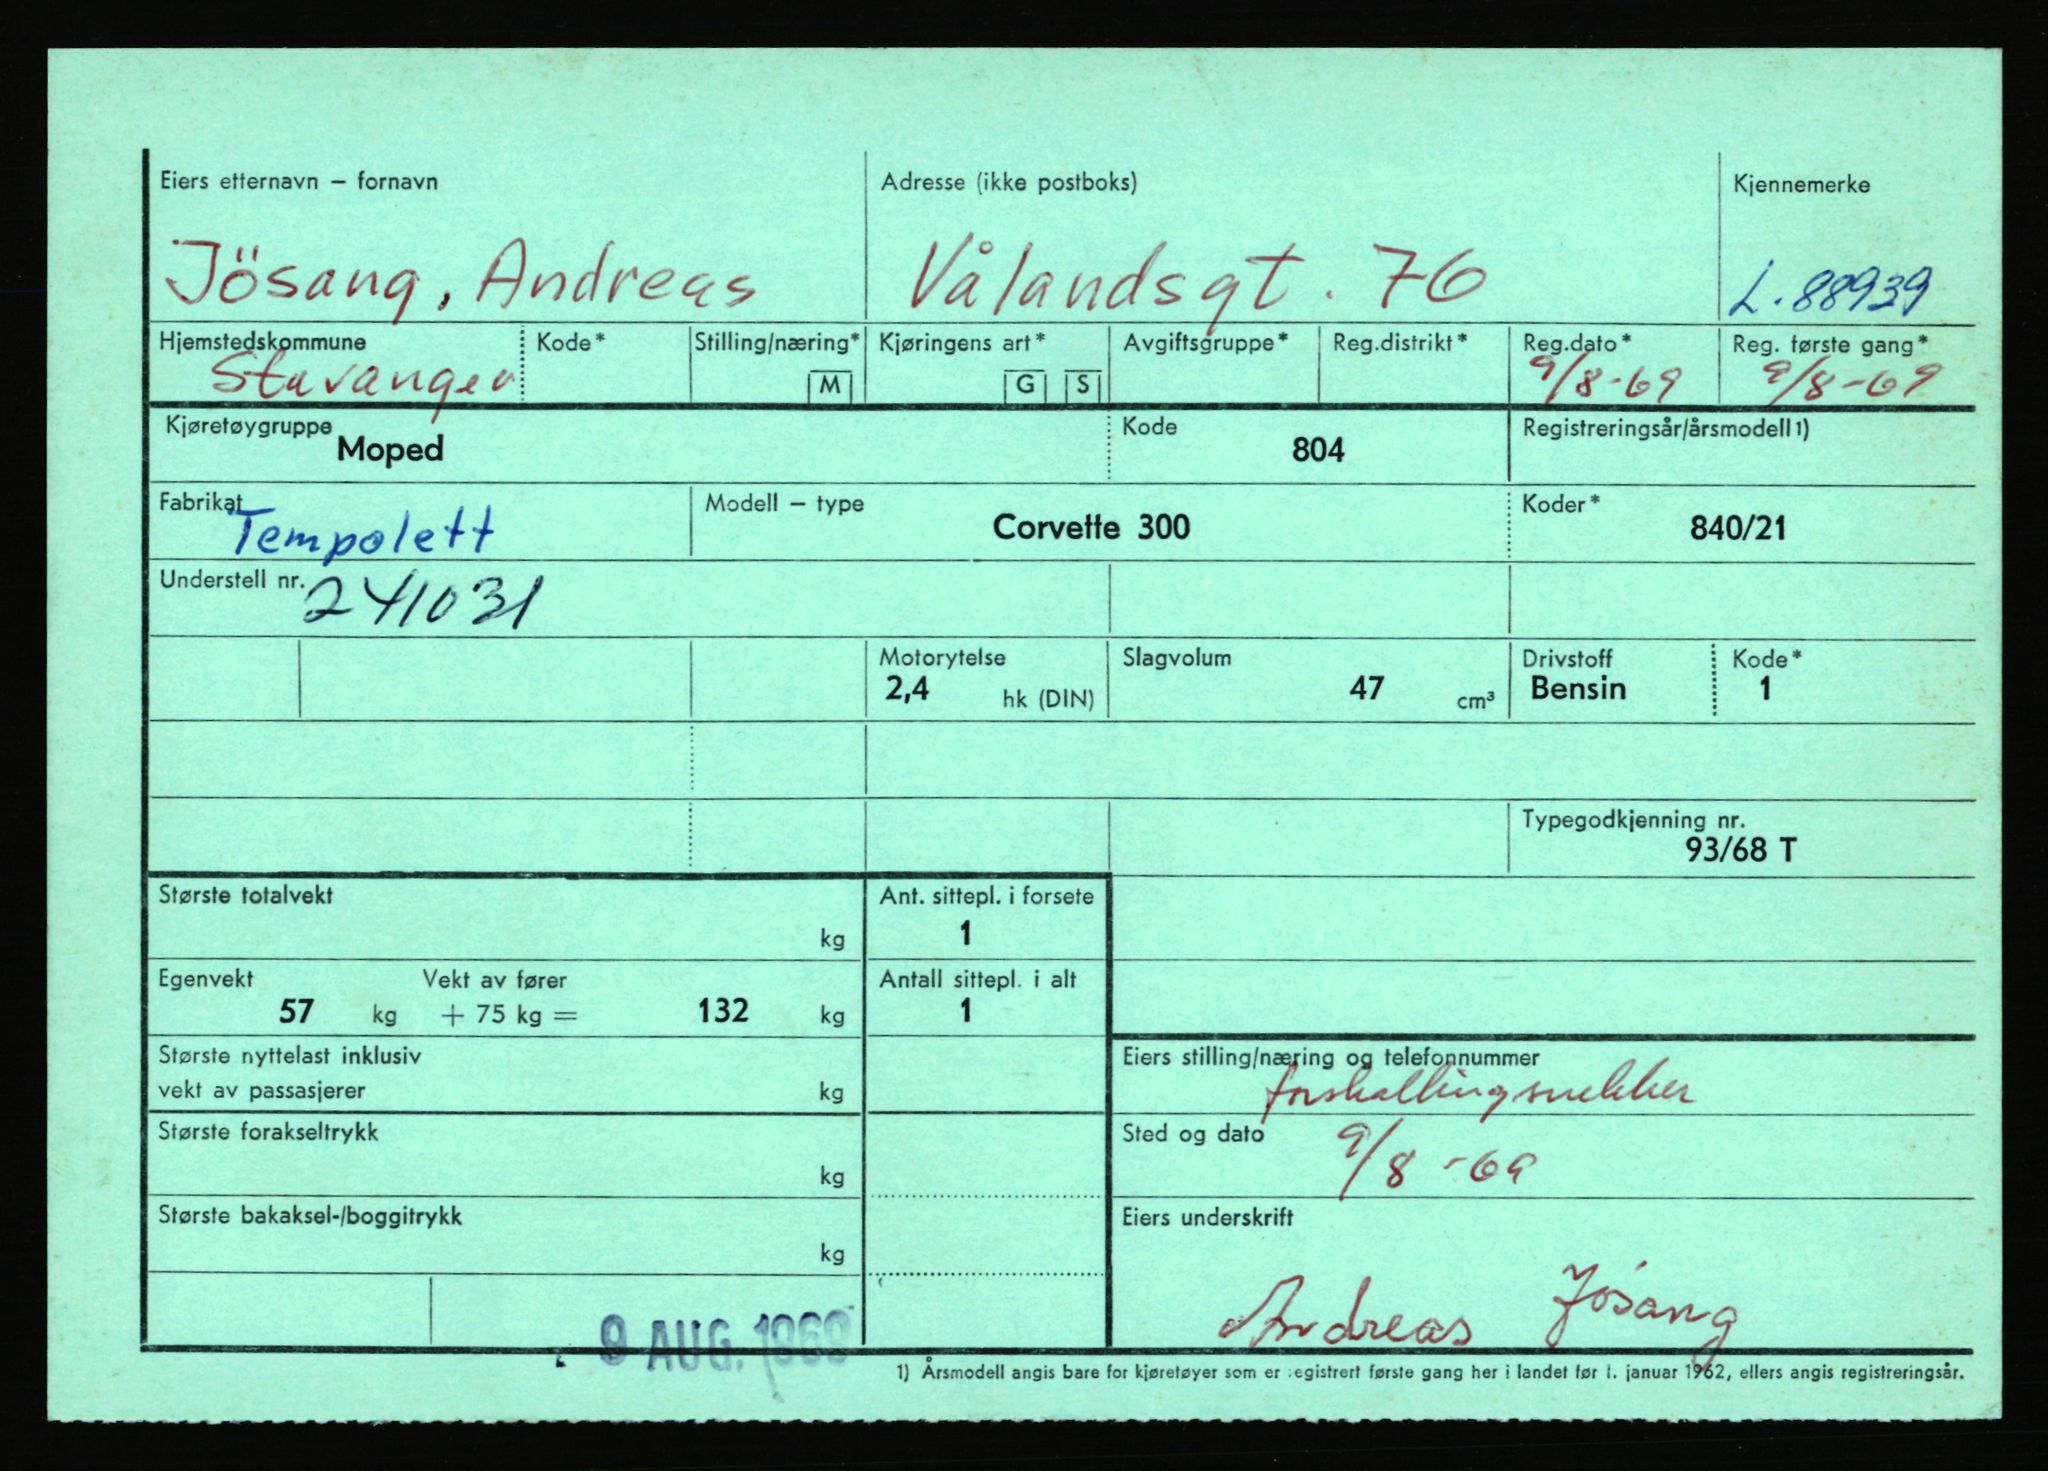 Eiers etternavn – fornavn Adresse (ikke postboks) Kjennemerke
Jösang, Andreas Vålandsgt. 76 L. 88939
Hjemstedskommune Kode* Stilling/næring* Kjøringens art* Avgiftsgruppe* Reg.distrikt* Reg.dato* Reg. første gang*
Stavanger M G S 9/8-69 9/8-69
Kjøretøygruppe Kode Registreringsår/årsmodell 1)
Moped 804
Fabrikat Modell – type Koder*
Tempolett Corvette 300 840/21
Understell nr.
241031
Motorytelse Slagvolum Drivstoff Kode*
2,4 hk (DIN) 47 cm³ Bensin 1
Typegodkjenning nr.
93/68 T
Største totalvekt Ant. sittepl. i forsete
kg 1
Egenvekt Vekt av fører Antall sittepl. i alt
57 kg + 75 kg = 132 kg 1
Største nyttelast inklusiv Eiers stilling/næring og telefonnummer
vekt av passasjerer kg forskallingsnekker
Største forakseltrykk Sted og dato
kg 9/8-69
Største bakaksel-/boggitrykk Eiers underskrift
kg
Andreas Jösang
9 AUG. 1969
1) Årsmodell angis bare for kjøretøyer som er registrert første gang her i landet før 1. januar 1962, ellers angis registreringsår.